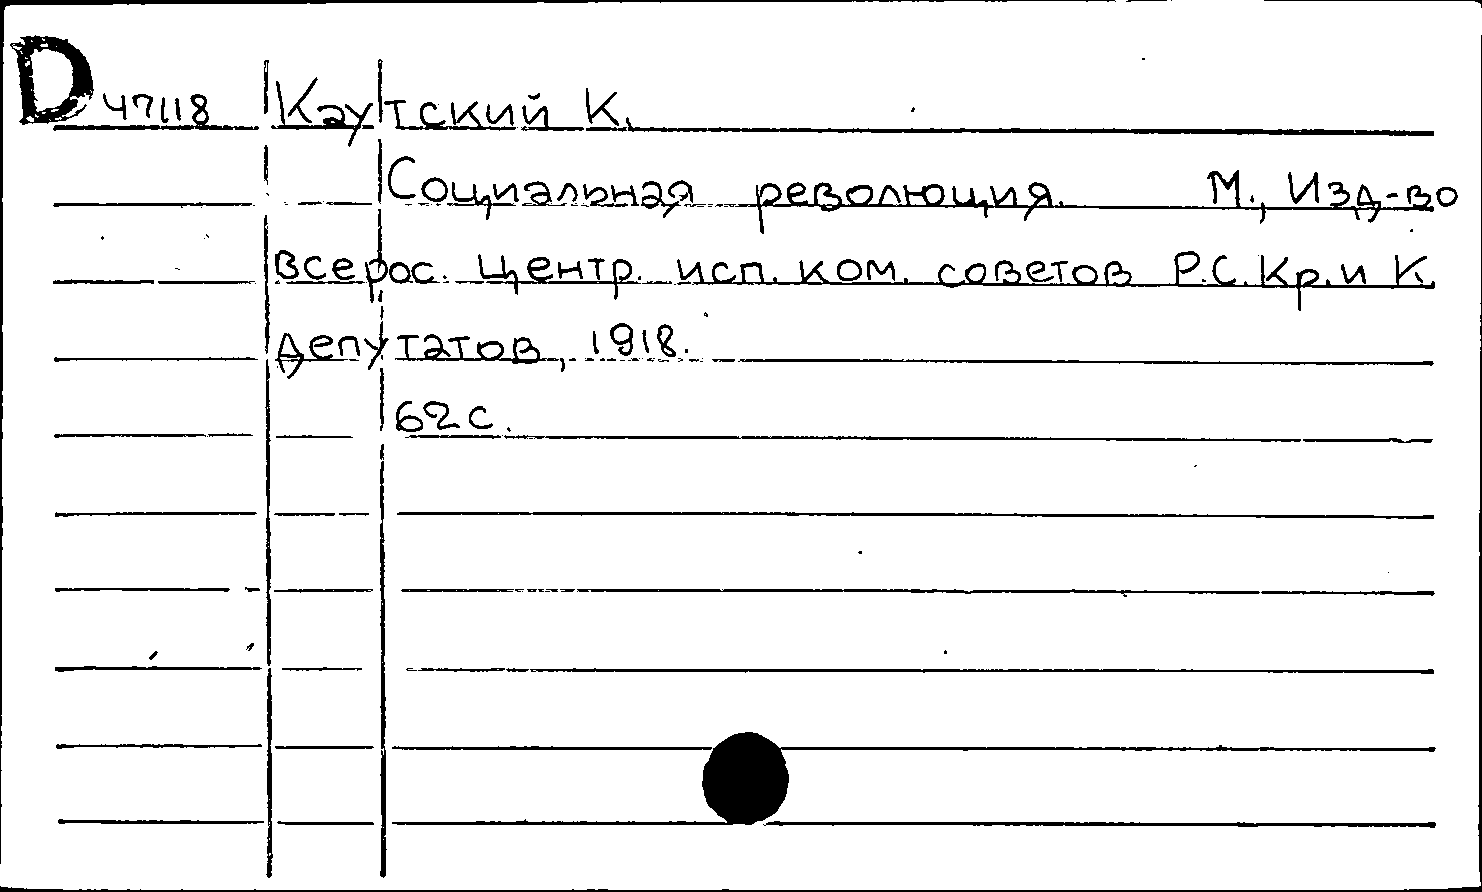 D 47118 Каутский К.
Социальная революция. М., Изд-во
всерос. Центр. исп. ком. советов Р.С.Кр.и К.
депутатов, 1918.
62 с.